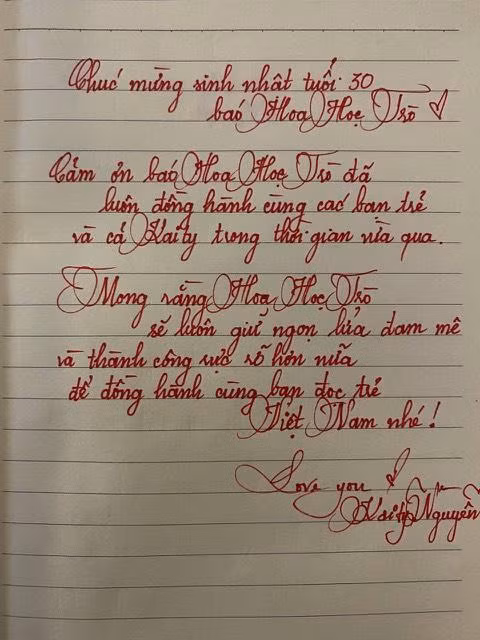 Chúc mừng sinh nhật tuổi 30
báo Hoa Học Trò
Cảm ơn báo Hoa Học Trò đã
luôn đồng hành cùng các bạn trẻ
và cả Kaity trong thời gian vừa qua.
Mong rằng Hoa Học Trò
sẽ luôn giữ ngọn lửa đam mê
và thành công rực rỡ hơn nữa
để đồng hành cùng bạn đọc trẻ
Việt Nam nhé!
Love you
Kaity Nguyễn